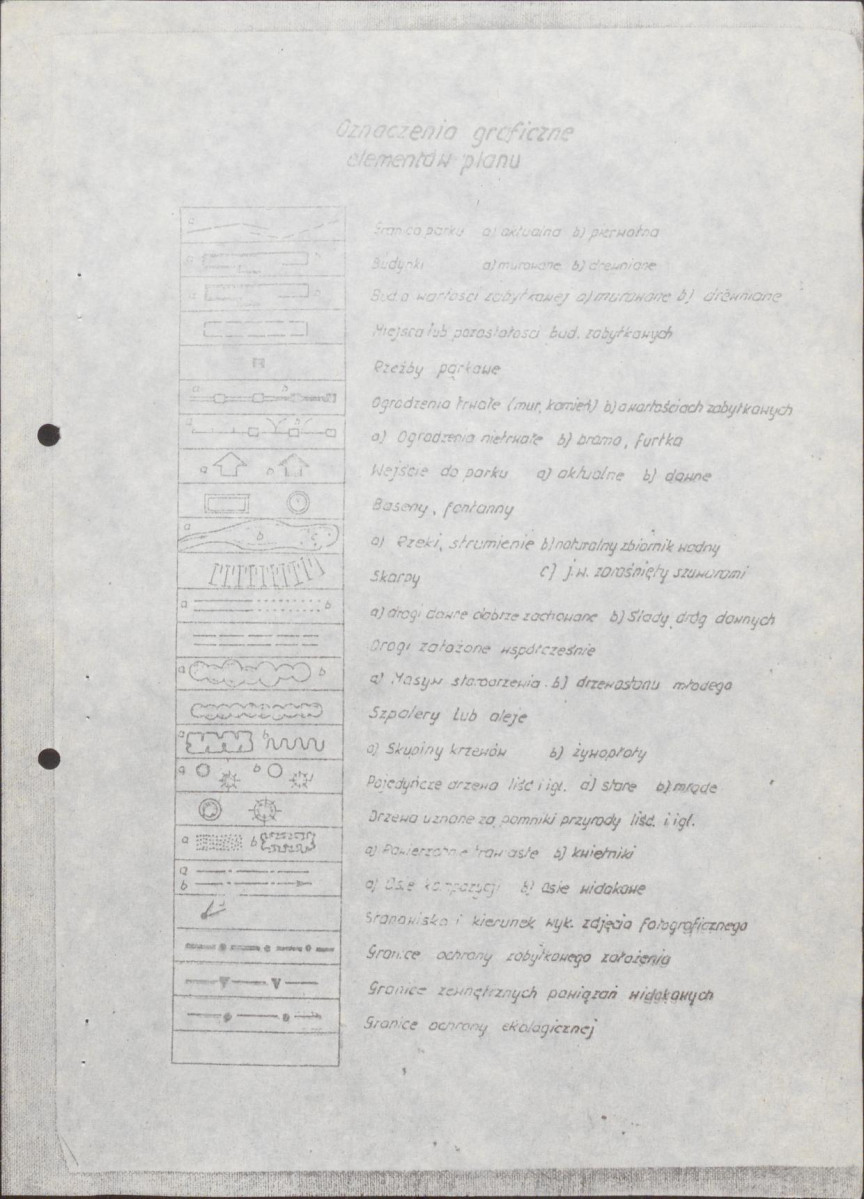 Oznaczenia graficzne
elementów planu
a
Granica parku a) aktualna b) pierwotna
a b
Budynki a) murowane b) drewniane
a b
Bud o wartości zabytkowej a) murowane b) drewniane
Miejsca lub pozostałości bud. zabytkowych
R
Rzeźby parkowe
a b
Ogrodzenia trwałe (mur, kamień) b) o wartościach zabytkowych
a b
a) Ogrodzenia nietrwałe b) brama, furtka
a b
Wejście do parku a) aktualne b) dawne
Baseny, fontanny
a b c
a) Rzeki, strumienie b) naturalny zbiornik wodny
Skarpy c) j.w. zarośnięty szuwarami
a b
a) drogi dawne dobrze zachowane b) Ślady dróg dawnych
Drogi założone współcześnie
a b
a) Masyw starodrzewia b) drzewostanu młodego
Szpalery lub aleje
a b
a) Skupiny krzewów b) żywopłoty
a b
Pojedyńcze drzewa liść i igl. a) stare b) młode
Drzewa uznane za pomniki przyrody liść. i igl.
a b
a) Powierzchnie trawiaste b) kwietniki
a
b
a) Osie kompozycji b) Osie widokowe
Stanowisko i kierunek wyk. zdjęcia fotograficznego
Granice ochrony zabytkowego założenia
Granice zewnętrznych powiązań widokowych
Granice ochrony ekologicznej